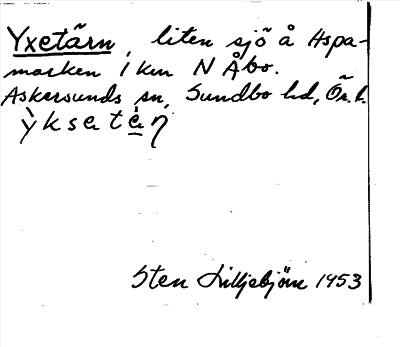 Yxetärn, liten sjö å Aspa-
marken 1 km N Åbo.
Askersunds sn, Sundbo hd, Ör. l.
ỳksetèn
Sten Lilljebjörn 1953